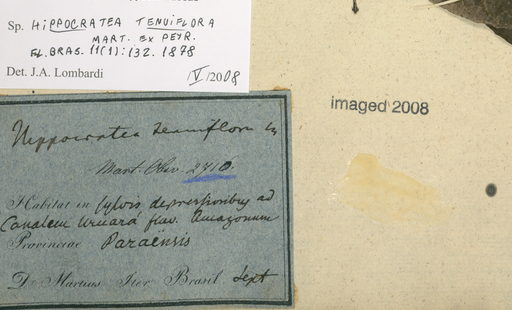 Sp. HIPPOCRATEA TENUIFLORA
MART. EX PEYR.
FL. BRAS. 11(1): 132. 1878
Det. J.A. Lombardi IV/2008
imaged 2008
Hippocratea tenuiflora
Mart. Obs. 2710.
Habitat in sylvis depressioribus ad
Canalem fluv. Amazonum
Provinciae Paraënsis
D. Martius Iter Brasil. Sept